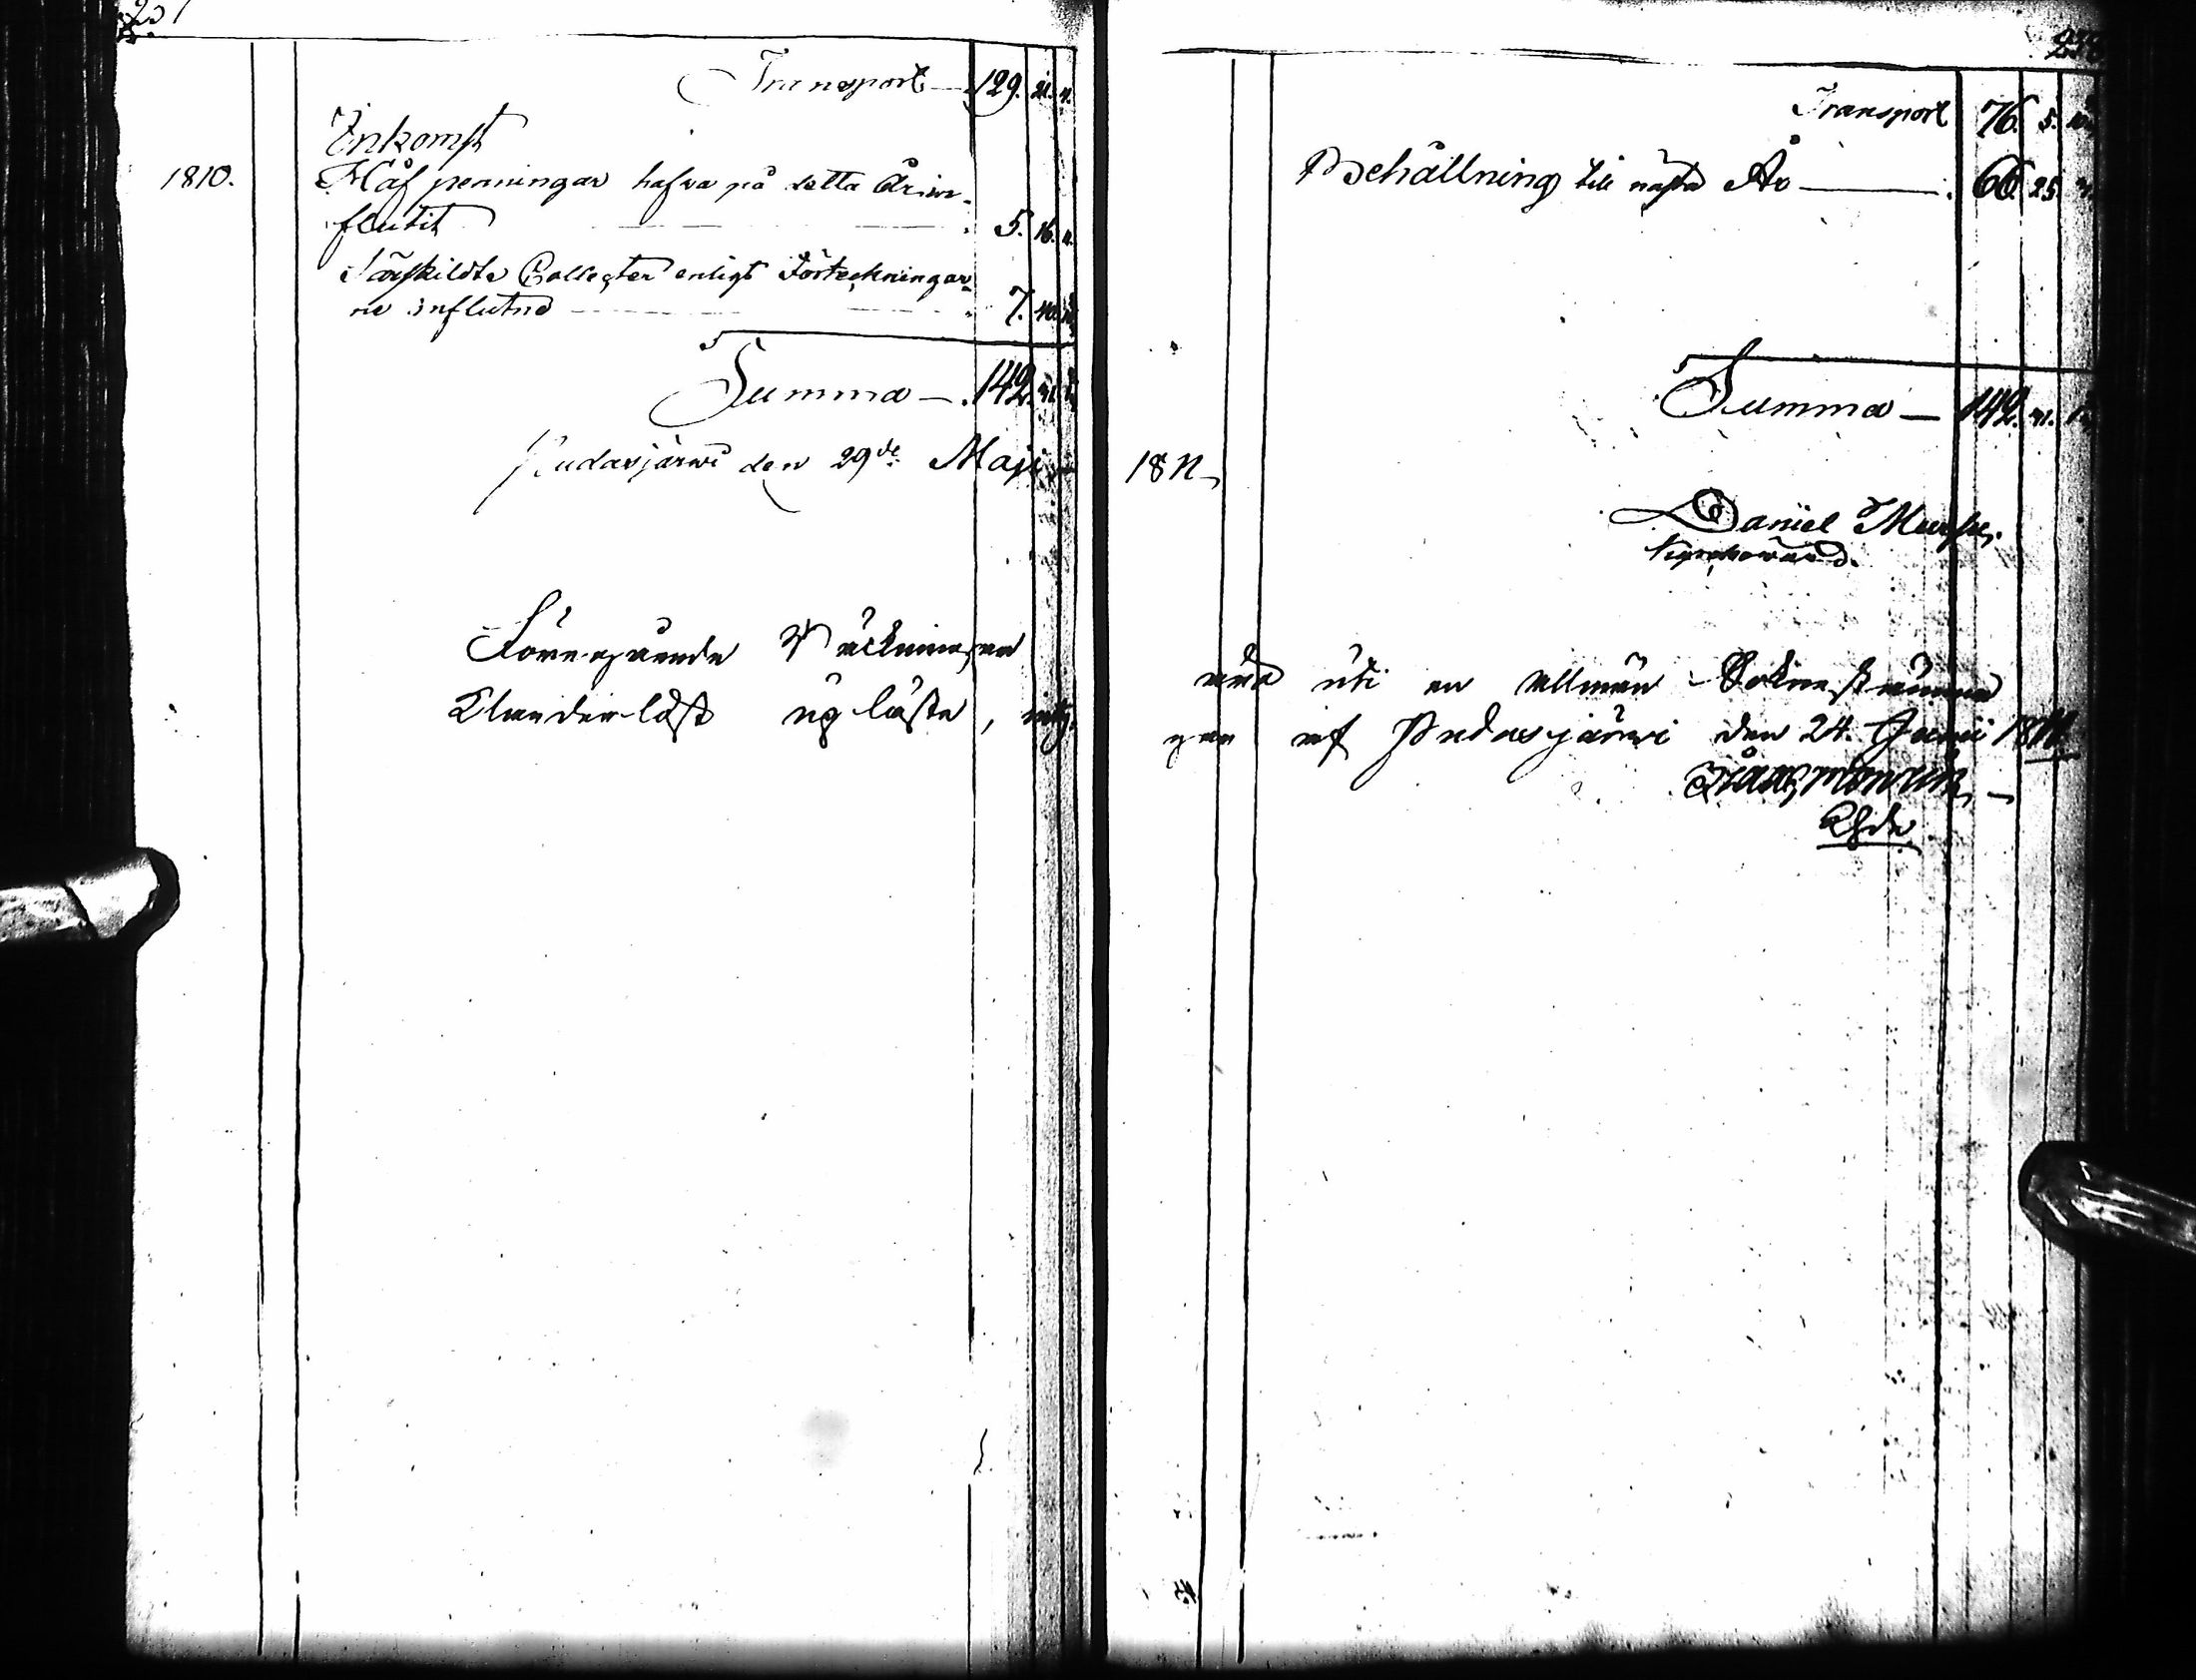 Transport — 129. 21. 4.
Inkomst
1810. Håf penningar hafva på detta År in-
flutit 5. 16.
Särskildte Collecter enligt Förteckningar-
ne influtne 7.
Summa — 142.
Pudasjärwi den 29de Maji
Föregående Räkningar
Klanderlöst uplästa,
Transport 76. 5.
Behållning till nästa År — 66. 25.
Summa — 142.
1811
Daniel
Kyrckowärd.
uti en allmän Sokne stämma
af Pudasjärwi den 24. Junii 1811